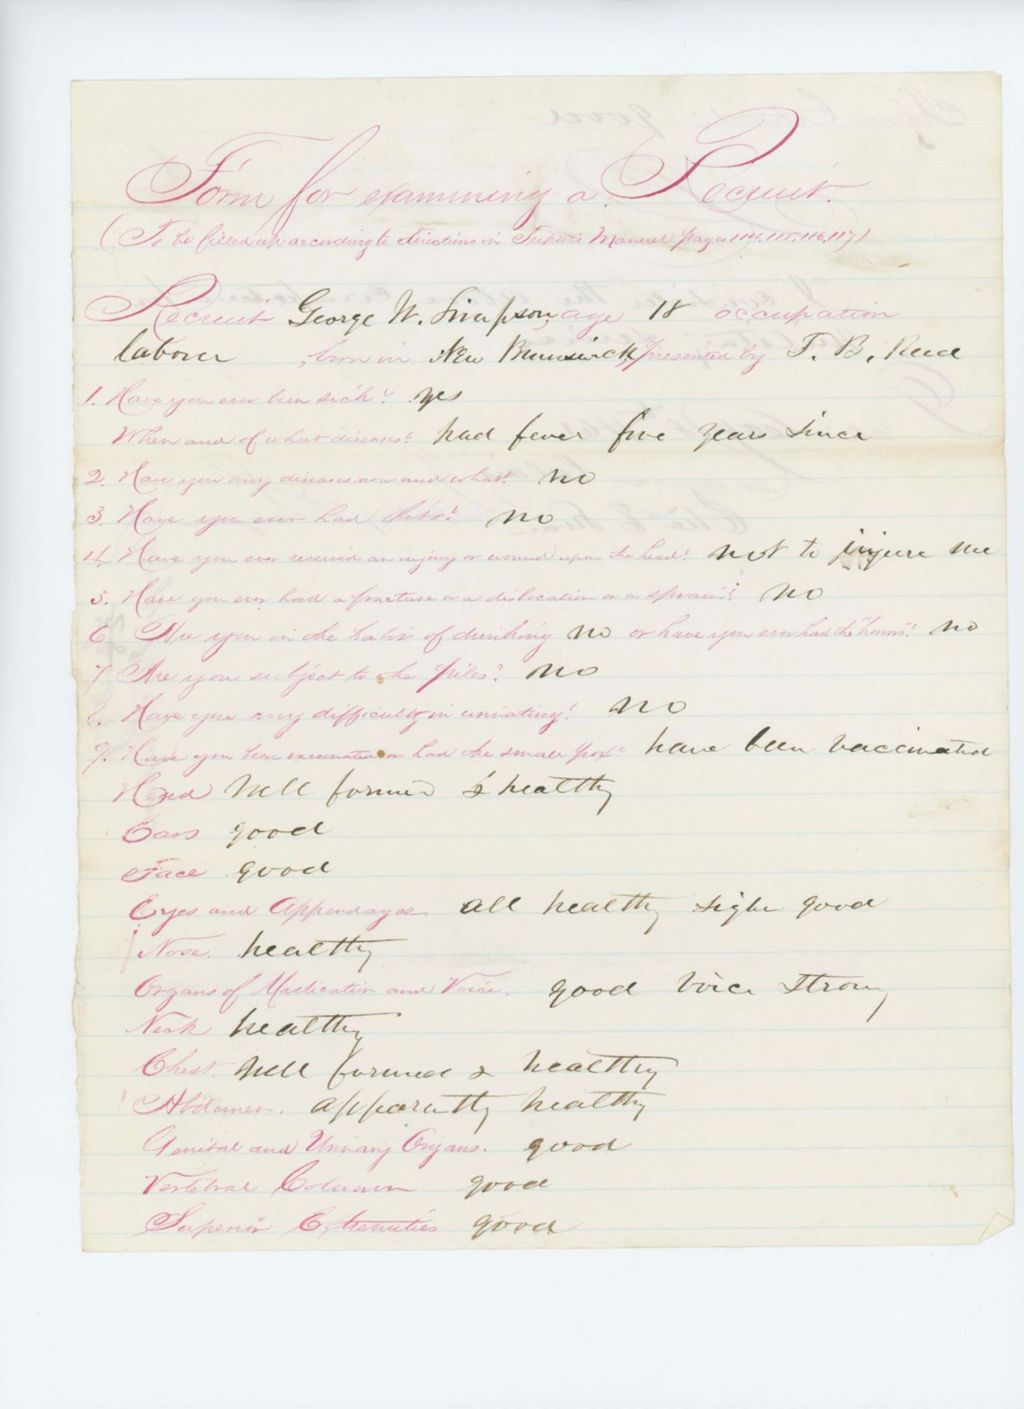 Form for examining a Recruit.
(To be filled up according to directions in Tripler's Manual pages 114, 115, 116, 117)
Recruit George W. Simpson, age 18 occupation
labourer, born in New Brunswick, presented by T. B. Reed
1. Have you ever been sick? yes
When and of what diseases? had fever five years since
2. Have you any diseases now and what? no
3. Have you ever had fits? no
4. Have you ever received an injury or wound upon the head? not to injure me
5. Have you ever had a fracture or a dislocation or a sprain? no
6. Are you in the habit of drinking no or have you ever had the "horrors"? no
7. Are you subject to the piles? no
8. Have you any difficulty in urinating? no
9. Have you been vaccinated or had the small pox? have been vaccinated
Head Well formed & healthy
Ears good
Face good
Eyes and Appendages all healthy sight good
Nose. healthy
Organs of Mastication and Voice. good Voice strong
Neck healthy
Chest. Well formed & healthy
Abdomen. apparently healthy
Genital and Urinary Organs. good
Vertebral Column good
Superior Extremities good